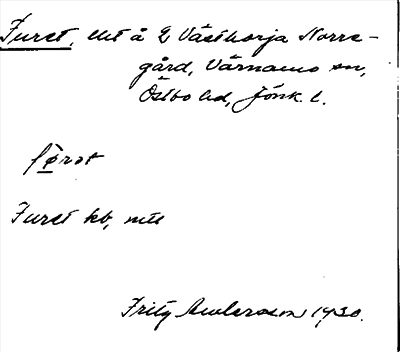 Furet, ... å 2 Västhorja Norre-
gård, Värnamo sn,
Östbo hd, Jönk. l.
førat
Furet kb,
Fritz Anderson 1930.